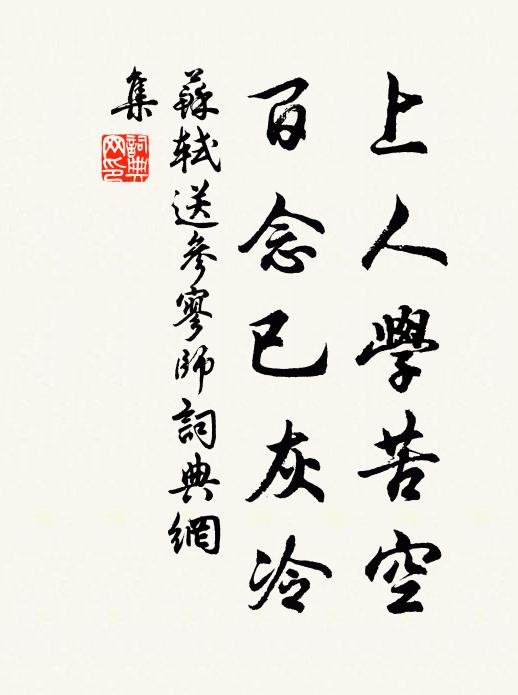 上人學苦空
百念已灰冷
蘇軾送參寥師詞典網
集
詞典網印